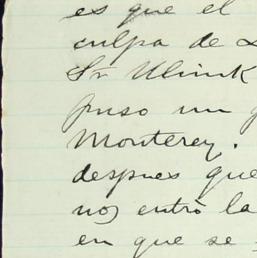 es que el
culpa de
Sr Ulink
puso un
Monterey.
despues que
nos entrò la
en que se